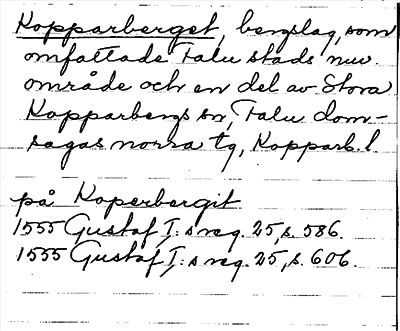 Kopparberget, bergslag, som
omfattade Falu stads nuv.
område och en del av Stora
Kopparbergs sn, Falu dom-
sagas norra tg, Kopparb. l
på Koperbergit
1555 Gustaf I:s reg. 25, s. 586.
1555 Gustaf I:s reg. 25, s. 606.